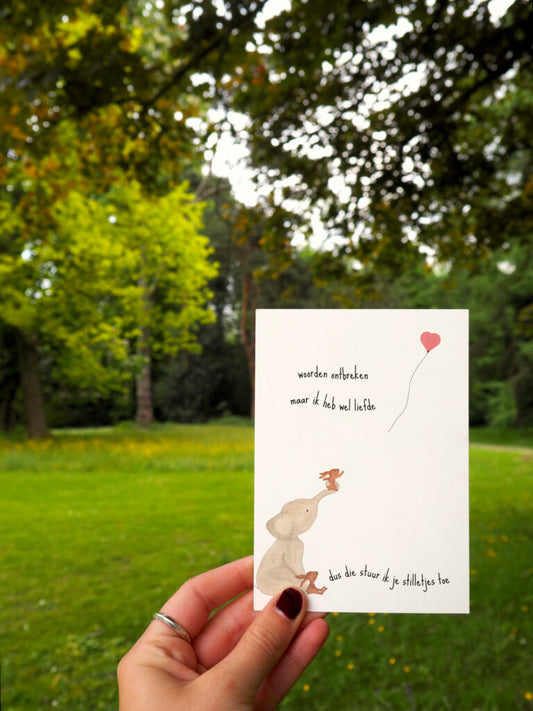 woorden ontbreken
maar ik heb wel liefde
dus die stuur ik je stilletjes toe